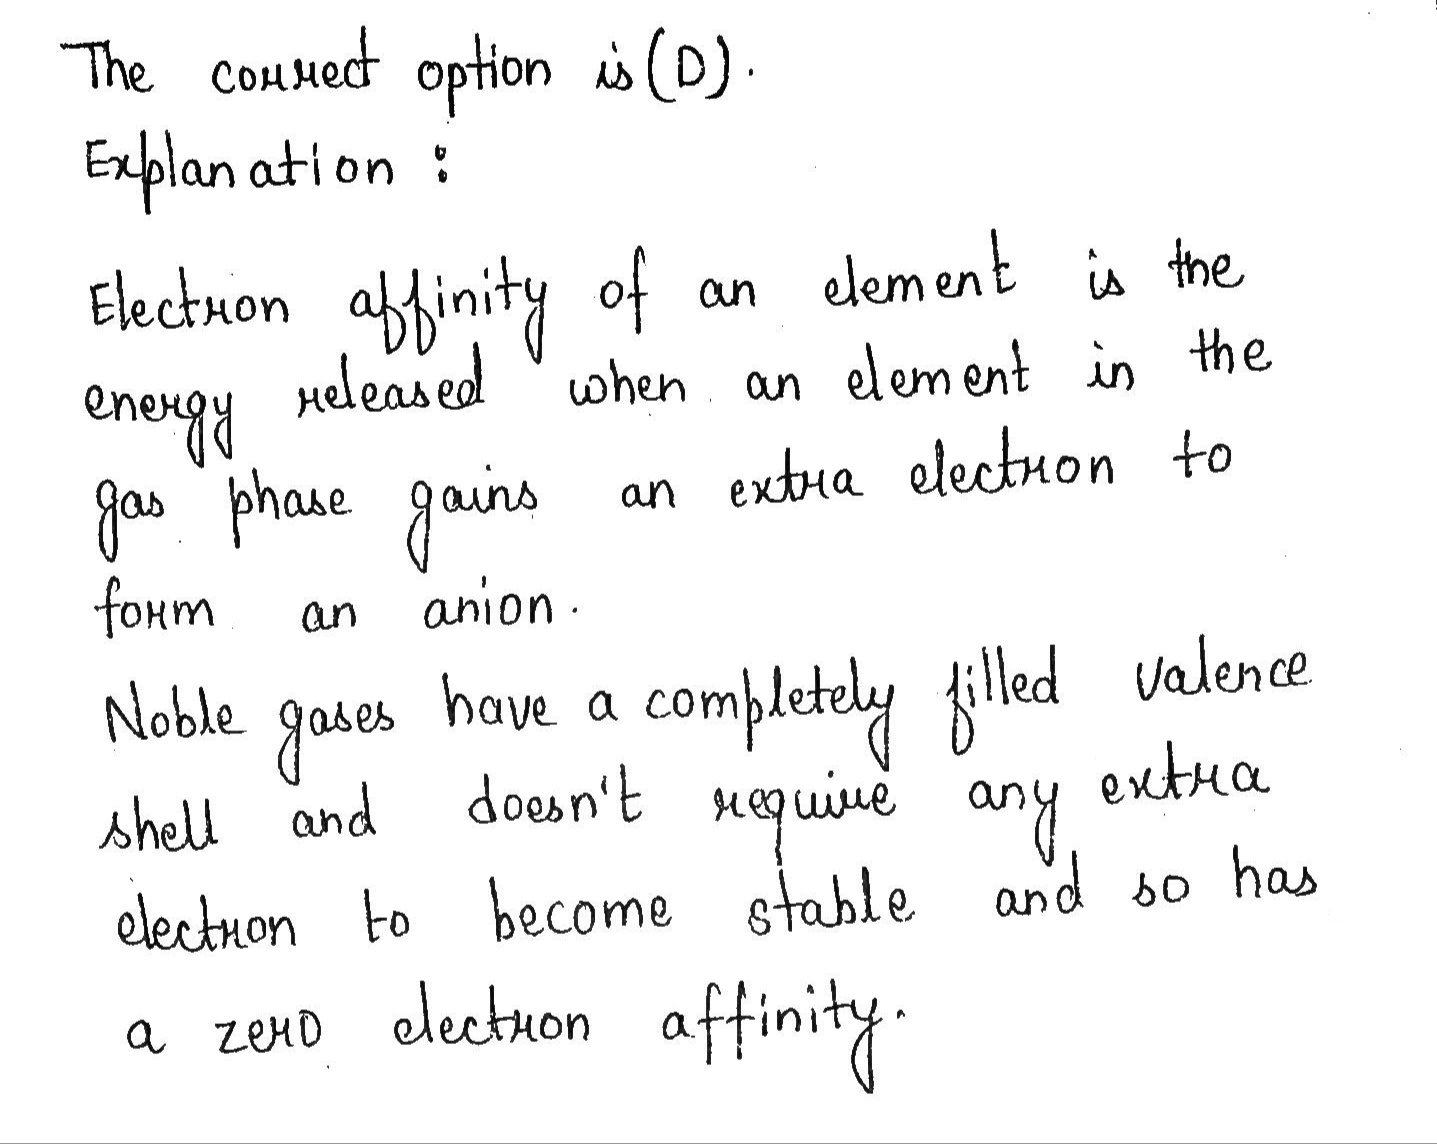 The correct option is (D).
Explanation :
Electron affinity of an element is the
energy released when an element in the
gas phase gains an extra electron to
form an anion.
Noble gases have a completely filled valence
shell and doesn't require any extra
electron to become stable and so has
a zero electron affinity.